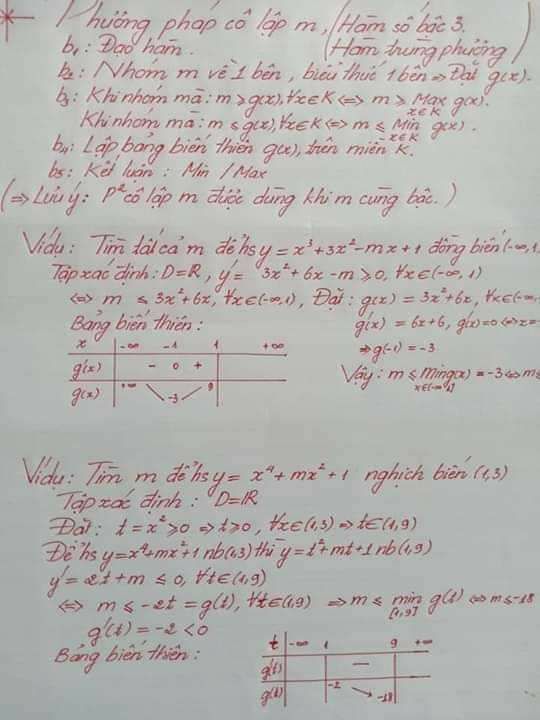 Phương pháp cô lập m, (Hàm số bậc 3.
(Hàm trùng phương)
b₁: Đạo hàm.
b₂: Nhóm m về 1 bên, biểu thức 1 bên ⇒ Đặt g(x).
b₃: Khi nhóm mà: m ≥ g(x), ∀x∈K ⇔ m ≥ Max g(x).
x∈K
Khi nhóm mà: m ≤ g(x), ∀x∈K ⇔ m ≤ Min g(x).
x∈K
b₄: Lập bảng biến thiên g(x), trên miền K.
b₅: Kết luận: Min / Max
(⇒ Lưu ý: P² cô lập m được dùng khi m cùng bậc.)
Ví dụ: Tìm tất cả m để hs y = x³ + 3x² - mx + 1 đồng biến (-∞, 1)
Tập xác định: D = ℝ, y' = 3x² + 6x - m ≥ 0, ∀x∈(-∞, 1)
⇔ m ≤ 3x² + 6x, ∀x∈(-∞, 1), Đặt: g(x) = 3x² + 6x, ∀x∈(-∞,
Bảng biến thiên: g'(x) = 6x + 6, g'(x) = 0 ⇔ x =
⇒ g(-1) = -3
Vậy: m ≤ min g(x) = -3 ⇔ m ≤
x∈(-∞, 1]
x -∞ -1 1 +∞
g'(x) - 0 +
g(x) +∞ -3 9
Ví dụ: Tìm m để hs y = x⁴ + mx² + 1 nghịch biến (1,3)
Tập xác định: D = ℝ
Đặt: t = x² ≥ 0 ⇒ t ≥ 0, ∀x∈(1,3) ⇒ t∈(1,9)
Để hs y = x⁴ + mx² + 1 nb (1,3) thì y = t² + mt + 1 nb (1,9)
y' = 2t + m ≤ 0, ∀t∈(1,9)
⇔ m ≤ -2t = g(t), ∀t∈(1,9) ⇒ m ≤ min g(t) ⇔ m ≤ -18
[1,9]
g'(t) = -2 < 0
Bảng biến thiên:
t -∞ 1 9 +∞
g'(t) -
g(t) -2 -18